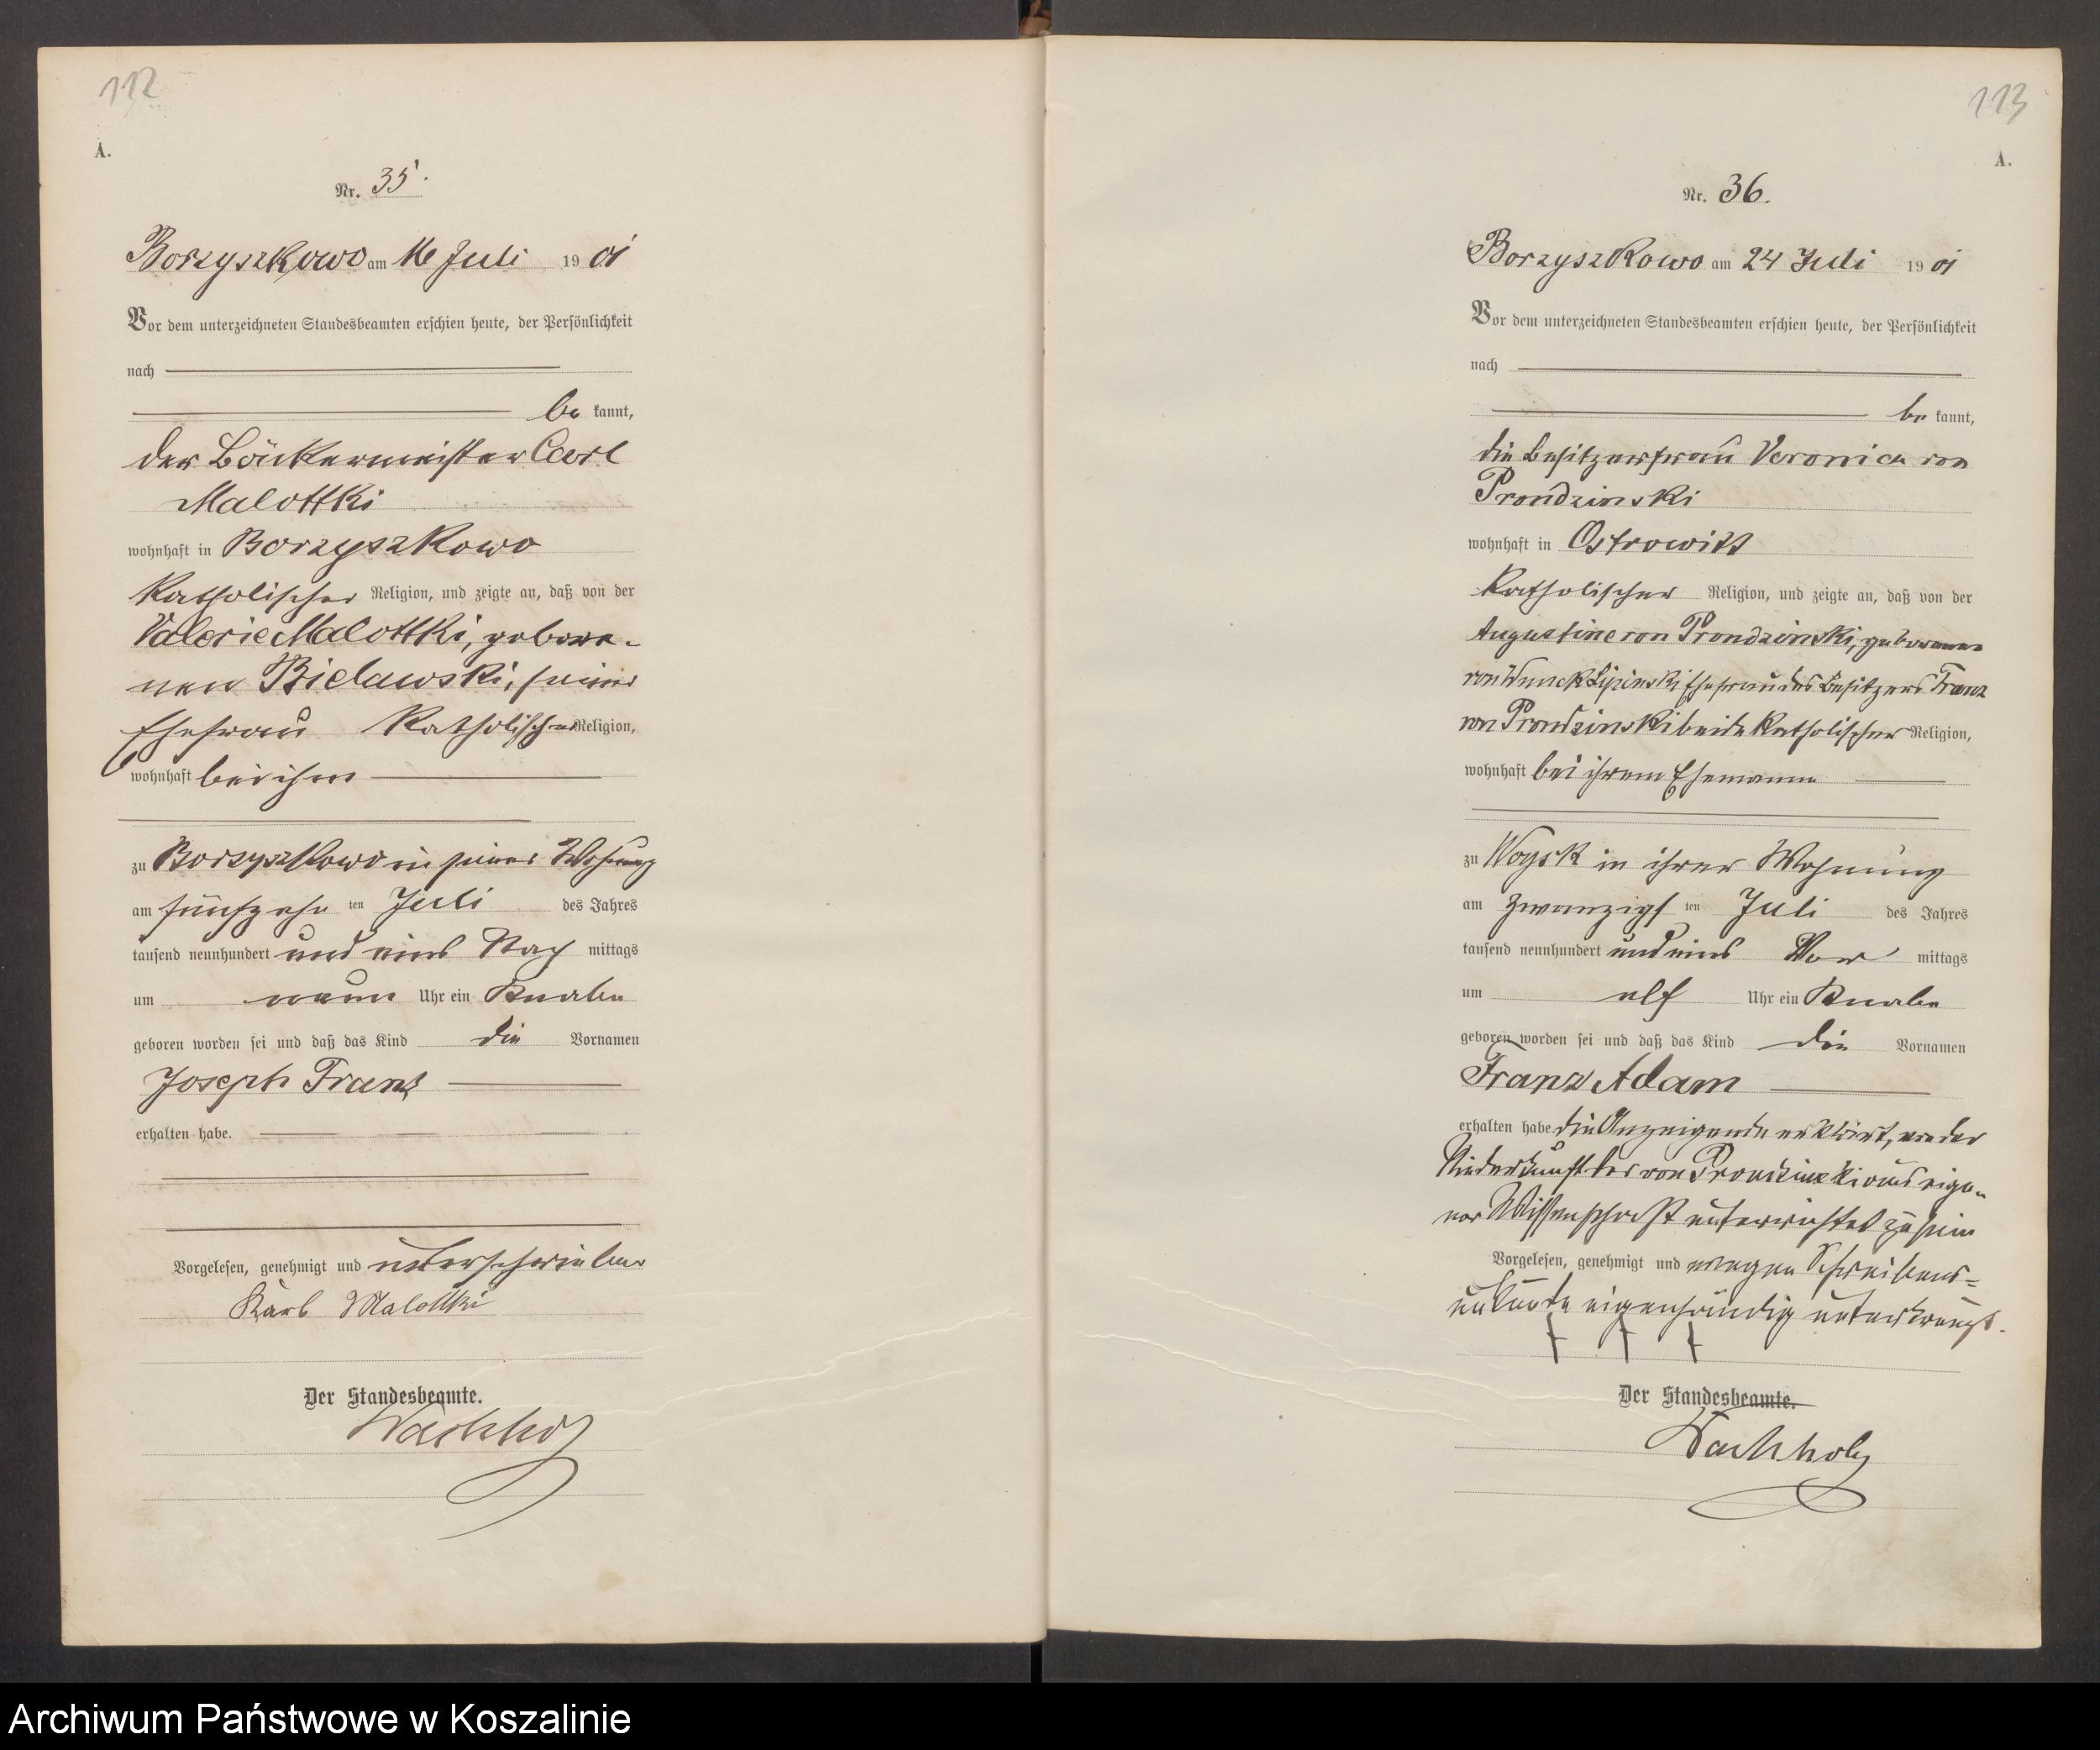 112
A.
Nr. 35.
Borzyszkowo am 16 Juli 1901
Vor dem unterzeichneten Standesbeamten erschien heute, der Persönlichkeit
nach
be kannt,
der Bäckermeister Carl
Malottki
wohnhaft in Borzyszkowo
katholischer Religion, und zeigte an, daß von der
Valerie Malottki, gebore-
nen Bielawski, seiner
Ehefrau katholischer Religion,
wohnhaft bei ihm
zu Borzyszkowo in seiner Wohnung
am fünfzehn ten Juli des Jahres
tausend neunhundert und eins Nach mittags
um neun Uhr ein Knabe
geboren worden sei und daß das Kind die Vornamen
Joseph Franz
erhalten habe.
Vorgelesen, genehmigt und unterschrieben
Karl Malottki
Der Standesbeamte.
Wachholz
113
A.
Nr. 36.
Borzyszkowo am 24 Juli 1901
Vor dem unterzeichneten Standesbeamten erschien heute, der Persönlichkeit
nach
be kannt,
die Besitzerfrau Veronica von
Prondzinski
wohnhaft in Ostrowitt
katholischer Religion, und zeigte an, daß von der
Augustine von Prondzinski, geborenen
von Wnuck Lipinski Ehefrau des Besitzers Franz
von Prondzinski beide katholischer Religion,
wohnhaft bei ihrem Ehemanne
zu Woysk in ihrer Wohnung
am zwanzigs ten Juli des Jahres
tausend neunhundert und eins Vor mittags
um elf Uhr ein Knabe
geboren worden sei und daß das Kind die Vornamen
Franz Adam
erhalten habe. die Anzeigende erklärt, von der
Niederkunft der von Prondzinski aus eige-
ner Wissenschaft unterrichtet zu sein
Vorgelesen, genehmigt und wegen Schreibens-
unkunde eigenhändig unterkreuzt.
† † †
Der Standesbeamte.
Wachholz
Archiwum Państwowe w Koszalinie